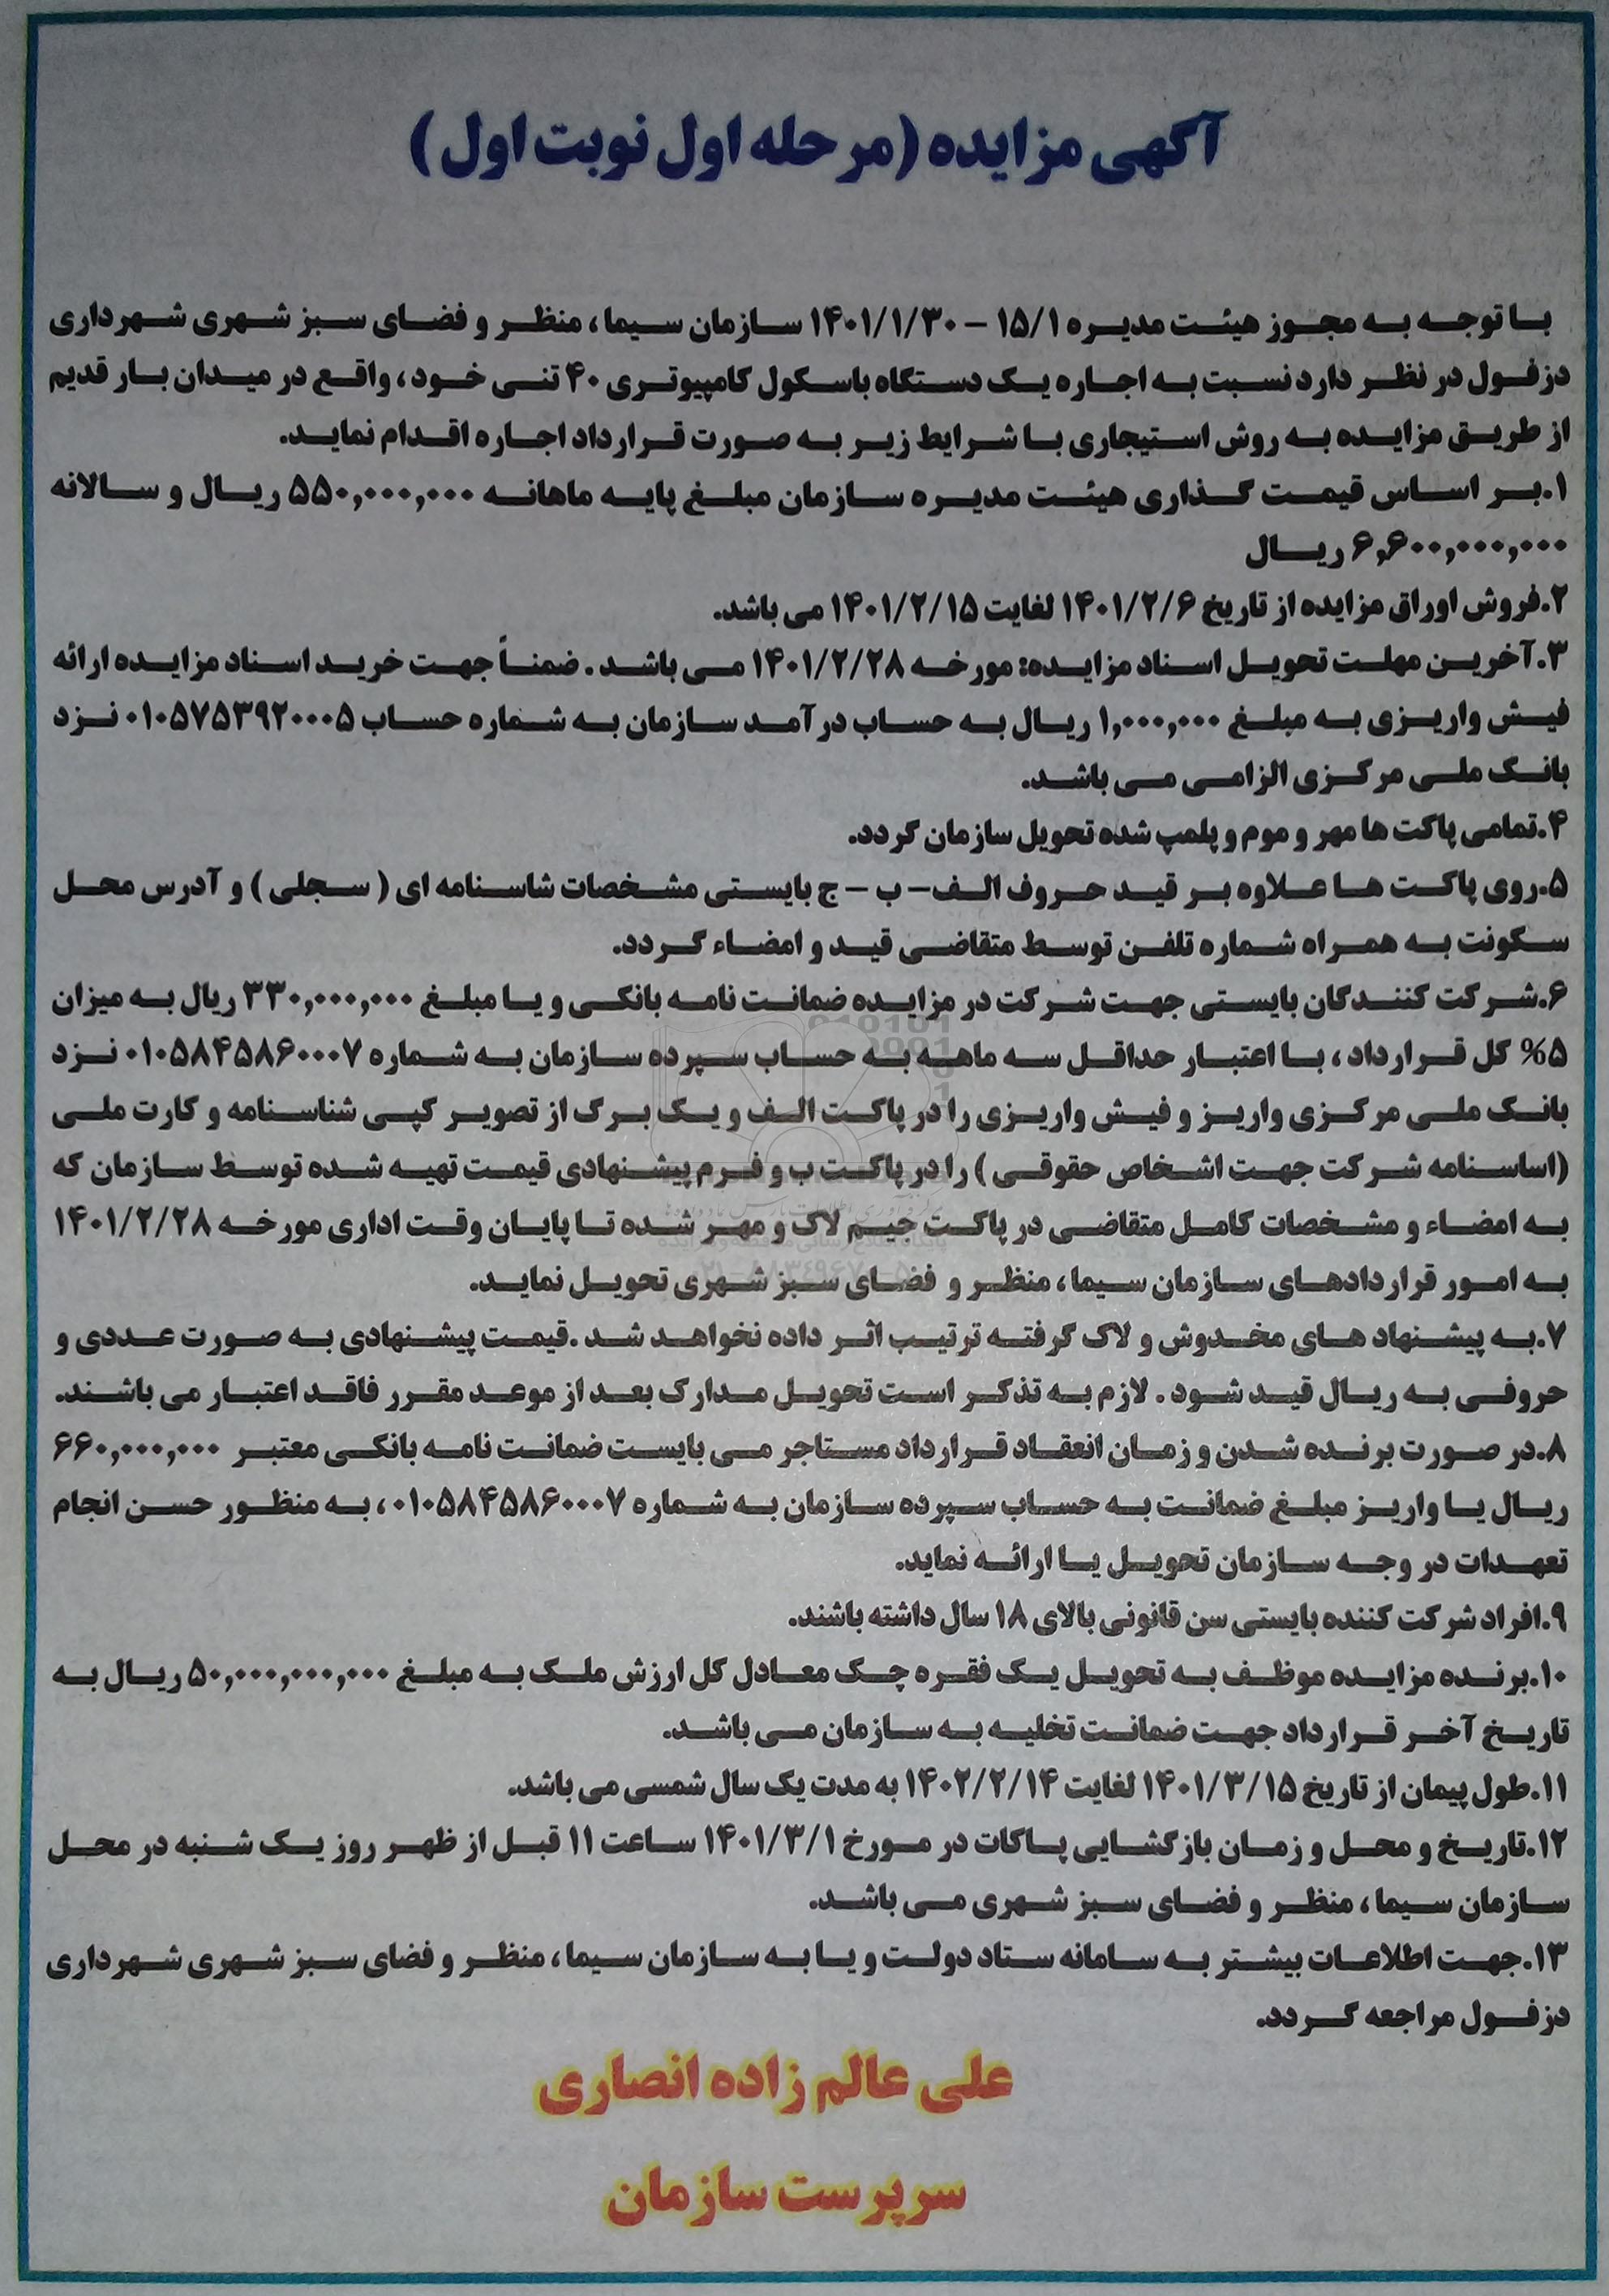 آگهی مزایده (مرحله اول نوبت اول)
با توجه به مجوز هیئت مدیره ۱۵/۱ - ۱۴۰۱/۱/۳۰ سازمان سیما، منظر و فضای سبز شهری شهرداری
دزفول در نظر دارد نسبت به اجاره یک دستگاه باسکول کامپیوتری ۴۰ تنی خود، واقع در میدان بار قدیم
از طریق مزایده به روش استیجاری با شرایط زیر به صورت قرارداد اجاره اقدام نماید.
۱.بر اساس قیمت گذاری هیئت مدیره سازمان مبلغ پایه ماهانه ۵۵۰,۰۰۰,۰۰۰ ریال و سالانه
۶,۶۰۰,۰۰۰,۰۰۰ ریال
۲.فروش اوراق مزایده از تاریخ ۱۴۰۱/۲/۶ لغایت ۱۴۰۱/۲/۱۵ می باشد.
۳.آخرین مهلت تحویل اسناد مزایده: مورخه ۱۴۰۱/۲/۲۸ می باشد. ضمناً جهت خرید اسناد مزایده ارائه
فیش واریزی به مبلغ ۱,۰۰۰,۰۰۰ ریال به حساب درآمد سازمان به شماره حساب ۰۱۰۵۷۵۳۹۲۰۰۰۵ نزد
بانک ملی مرکزی الزامی می باشد.
۴.تمامی پاکت ها مهر و موم و پلمپ شده تحویل سازمان گردد.
۵.روی پاکت ها علاوه بر قید حروف الف- ب - ج بایستی مشخصات شاسنامه ای ( سجلی ) و آدرس محل
سکونت به همراه شماره تلفن توسط متقاضی قید و امضاء گردد.
۶.شرکت کنندگان بایستی جهت شرکت در مزایده ضمانت نامه بانکی و یا مبلغ ۳۳۰,۰۰۰,۰۰۰ ریال به میزان
۵% کل قرارداد، با اعتبار حداقل سه ماهه به حساب سپرده سازمان به شماره ۰۱۰۵۸۴۵۸۶۰۰۰۷ نزد
بانک ملی مرکزی واریز و فیش واریزی را در پاکت الف و یک برگ از تصویر کپی شناسنامه و کارت ملی
(اساسنامه شرکت جهت اشخاص حقوقی) را در پاکت ب و فرم پیشنهادی قیمت تهیه شده توسط سازمان که
به امضاء و مشخصات کامل متقاضی در پاکت جیم لاک و مهر شده تا پایان وقت اداری مورخه ۱۴۰۱/۲/۲۸
به امور قراردادهای سازمان سیما، منظر و فضای سبز شهری تحویل نماید.
۷.به پیشنهاد های مخدوش و لاک گرفته ترتیب اثر داده نخواهد شد.قیمت پیشنهادی به صورت عددی و
حروفی به ریال قید شود. لازم به تذکر است تحویل مدارک بعد از موعد مقرر فاقد اعتبار می باشند.
۸.در صورت برنده شدن و زمان انعقاد قرارداد مستاجر می بایست ضمانت نامه بانکی معتبر ۶۶۰,۰۰۰,۰۰۰
ریال یا واریز مبلغ ضمانت به حساب سپرده سازمان به شماره ۰۱۰۵۸۴۵۸۶۰۰۰۷، به منظور حسن انجام
تعهدات در وجه سازمان تحویل یا ارائه نماید.
۹.افراد شرکت کننده بایستی سن قانونی بالای ۱۸ سال داشته باشند.
۱۰.برنده مزایده موظف به تحویل یک فقره چک معادل کل ارزش ملک به مبلغ ۵۰,۰۰۰,۰۰۰,۰۰۰ ریال به
تاریخ آخر قرارداد جهت ضمانت تخلیه به سازمان می باشد.
۱۱.طول پیمان از تاریخ ۱۴۰۱/۳/۱۵ لغایت ۱۴۰۲/۲/۱۴ به مدت یک سال شمسی می باشد.
۱۲.تاریخ و محل و زمان بازگشایی پاکات در مورخ ۱۴۰۱/۳/۱ ساعت ۱۱ قبل از ظهر روز یک شنبه در محل
سازمان سیما، منظر و فضای سبز شهری می باشد.
۱۳.جهت اطلاعات بیشتر به سامانه ستاد دولت و یا به سازمان سیما، منظر و فضای سبز شهری شهرداری
دزفول مراجعه گردد.
علی عالم زاده انصاری
سرپرست سازمان